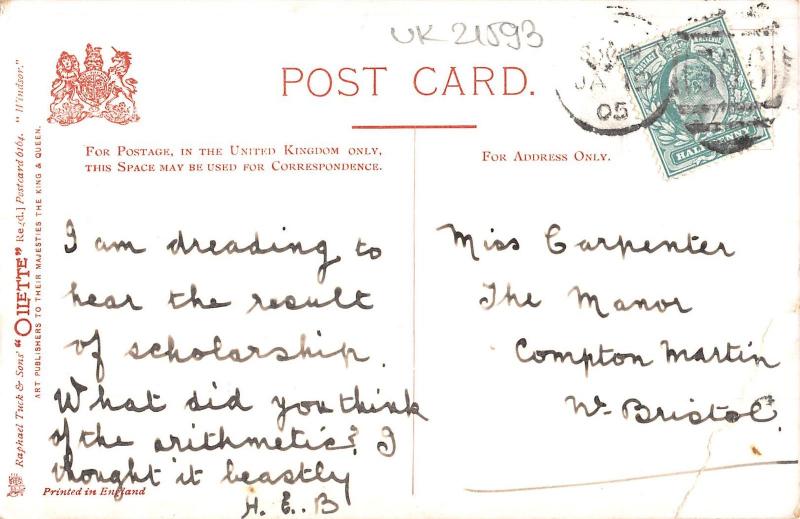 UK 21593
POST CARD.
JA
05
POSTAGE REVENUE
HALF PENNY
FOR POSTAGE, IN THE UNITED KINGDOM ONLY,
THIS SPACE MAY BE USED FOR CORRESPONDENCE.
FOR ADDRESS ONLY.
I am dreading to
hear the result
of scholarship.
What did you think
of the arithmetic? I
thought it beastly
H. E. B
Miss Carpenter
The Manor
Compton Martin
Nr Bristol.
Raphael Tuck & Sons' "OILETTE" Regd.] Postcard 6164. "Windsor."
ART PUBLISHERS TO THEIR MAJESTIES THE KING & QUEEN.
Printed in England